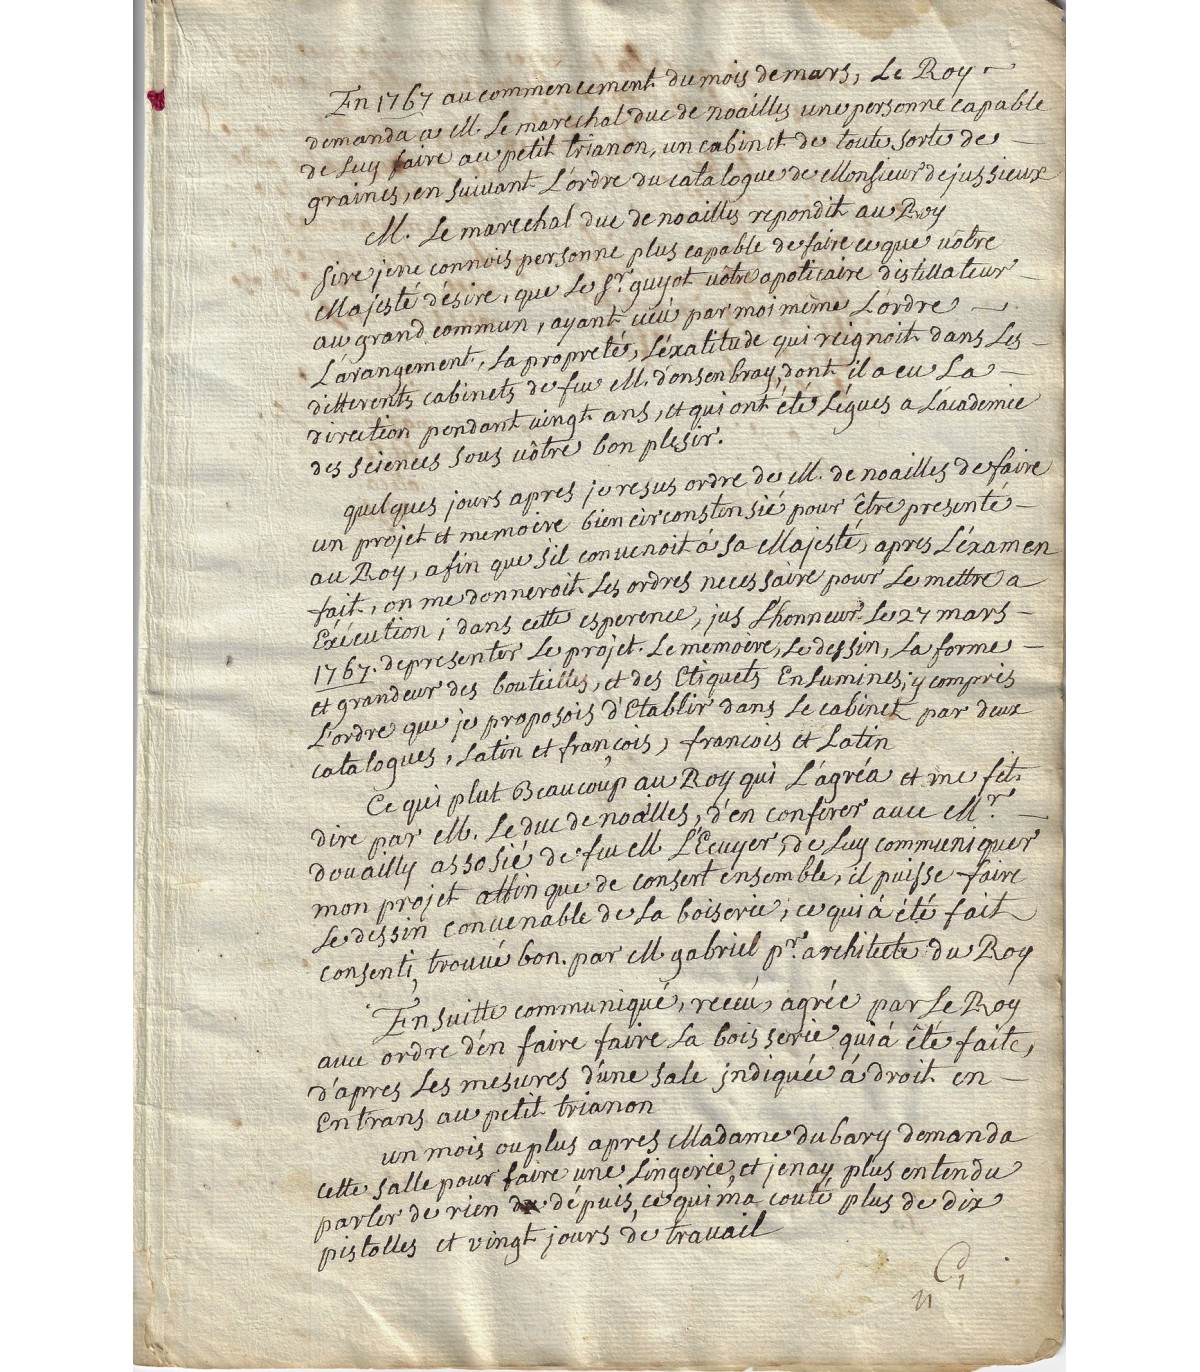 En 1767 au commencement du mois de mars, Le Roy
demanda a M. Le marechal duc de noailles une personne capable
de Luy faire au petit trianon, un cabinet de toute sorte de
graines, en suivant L'ordre du catalogue de Monsieur de jussieux
M. Le marechal duc de noailles repondit au Roy
sire je ne connois personne plus capable de faire ce que vôtre
Majesté désire, que Le Sr. guyot vôtre apoticaire distillateur
au grand commun, ayant veü par moi même L'ordre
L'arangement, La propreté, L'éxatitude qui reignoit dans Les
differents cabinets de feu M. d'onsenbray, dont il a eu La
direction pendant vingt ans, et qui ont été Légues a L'académie
des sciences sous vôtre bon plesir.
quelques jours apres je resus ordre de M. de noailles de faire
un projet et memoire bien circonstensié pour être presenté
au Roy, afin que s'il convenoit á sa Majesté, apres L'éxamen
fait, on me donneroit Les ordres necessaire pour Le mettre a
Exécution; dans cette esperence, jus L'honneur Le 27 mars
1767. de presenter Le projet. Le memoire, Le dessin, La forme
et grandeur des bouteilles, et des Etiquets Enlumines, y compris
L'ordre que je proposois d'Etablir dans Le cabinet par deux
catalogues, Latin et françois, francois et Latin
Ce qui plut Beaucoup au Roy qui L'agréa et me fet
dire par M. Le duc de noailles, d'en conferer avec Mr.
douailly assosié de feu M L'Ecuyer, de Luy communiquer
mon projet affin que de consert ensemble, il puisse faire
Le dessin convenable de La boiserie; ce qui á été fait
consenti, trouvé bon. par M gabriel pr. architecte du Roy
Ensuitte communiqué, receü, agrée par Le Roy
avec ordre d'en faire faire La boisserie qui á êté faite,
d'apres Les mesures d'une sale jndiquée á droit en
Entrans au petit trianon
un mois ou plus apres Madame dubary demanda
cette salle pour faire une Lingerie, et je nay plus entendu
parler de rien dépuis, ce qui ma couté plus de dix
pistolles et vingt jours de travail